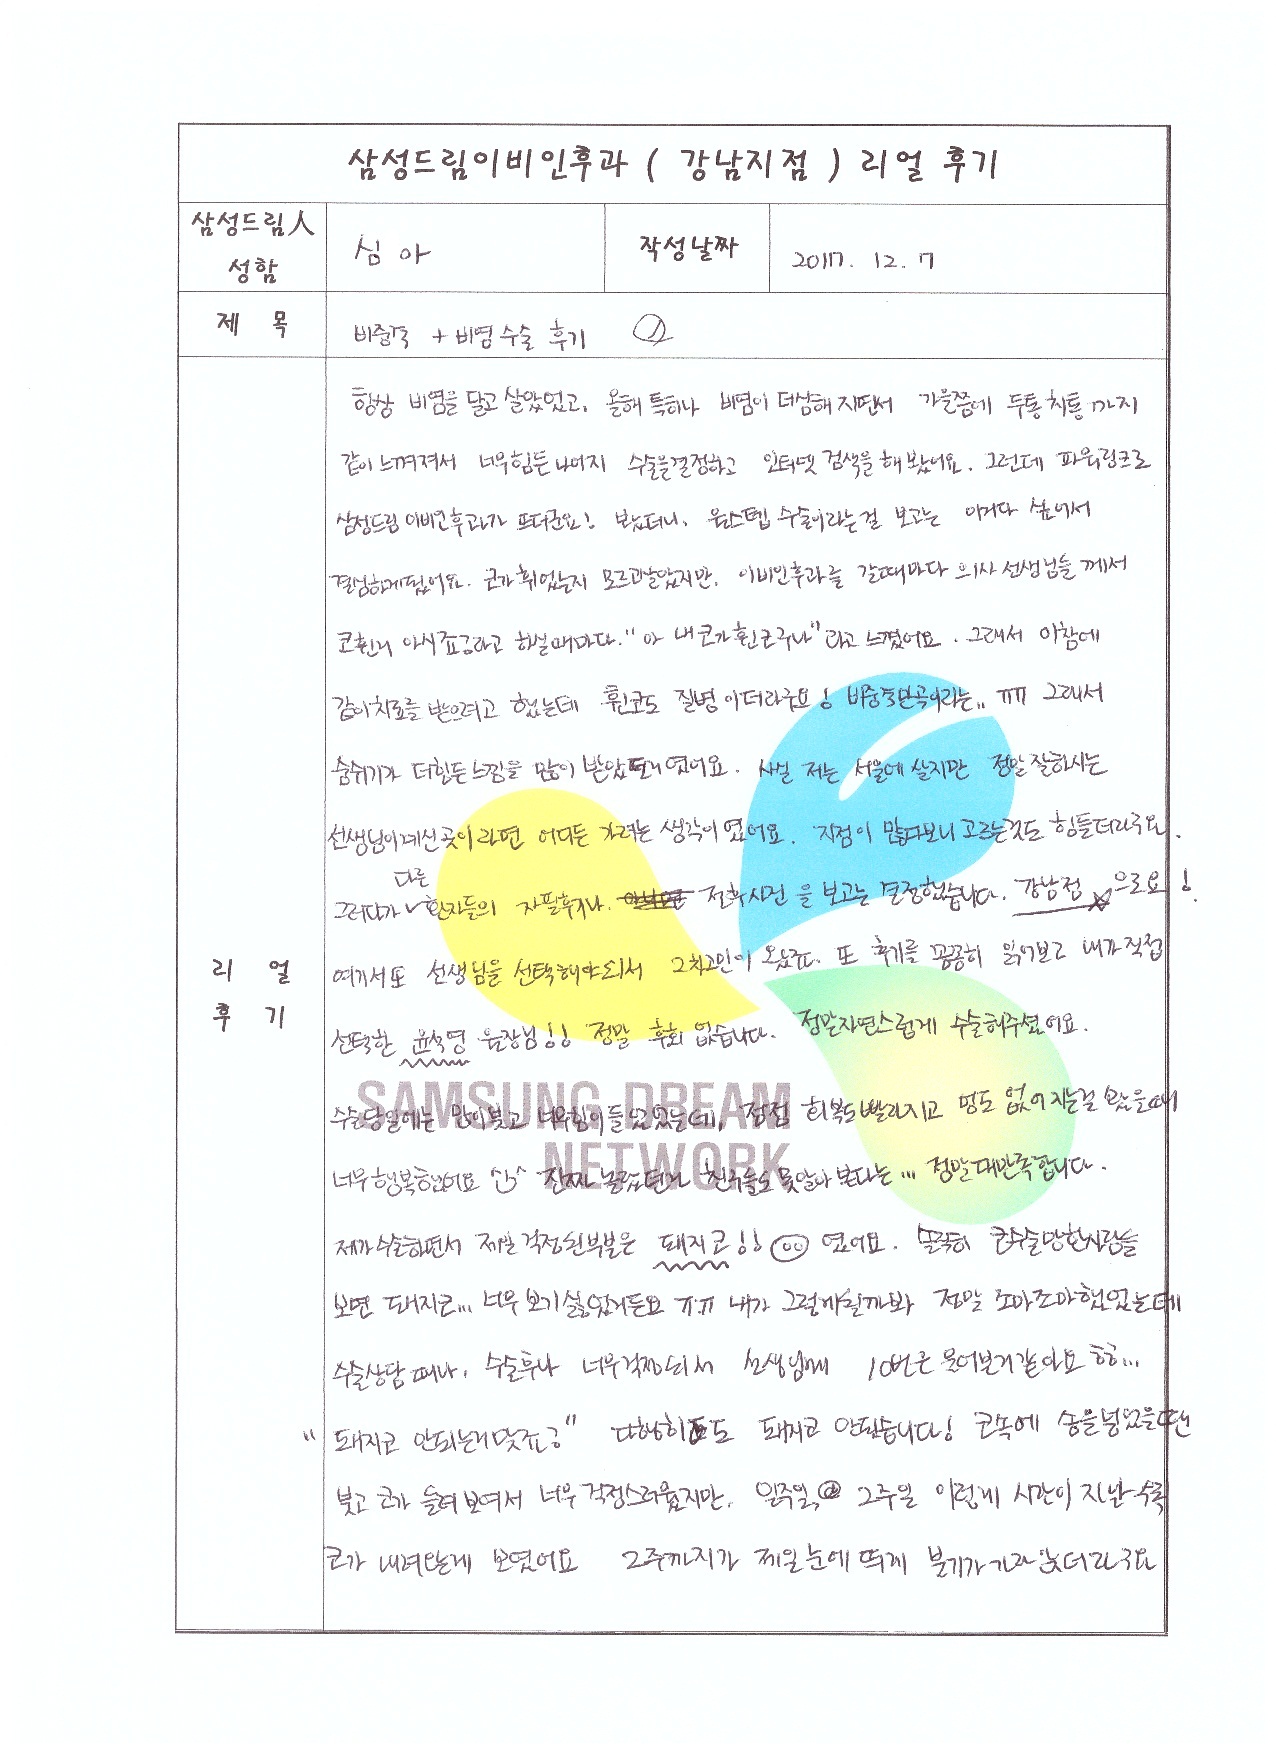 삼성드림이비인후과 ( 강남지점 ) 리얼 후기
삼성드림人 성함
심 아
작성날짜
2017. 12. 7
제 목
비중격 + 비염수술 후기 ①
리 얼 후 기
항상 비염을 달고 살았었고, 올해 특히나 비염이 더심해지면서 가을쯤에 두통 치통까지
같이 느껴져서 너무힘든나머지 수술을결정하고 인터넷 검색을 해봤어요. 그런데 파워링크로
삼성드림 이비인후과가 뜨더군요! 봤더니, 원스텝 수술이라는걸 보고는 이거다 싶어서
결심하게됐어요. 코가 휘었는지 모르고살았지만, 이비인후과를 갈때마다 의사 선생님들 께서
코휜거 아시죠?라고 하실때마다. "아 내코가휜코구나" 라고 느꼈어요. 그래서 이참에
같이치료를 받으려고 했는데 휜코도 질병이더라구요! 비중격만곡이라는.. ㅠㅠ 그래서
숨쉬기가 더힘든느낌을 많이 받았던거였어요. 사실 저는 서울에 살지만 정말잘하시는
선생님이계신곳이라면 어디든 가려는 생각이였어요. 지점이 많다보니 고르는것도 힘들더라구요.
그러다가 다른 환자들의 자필후기나 전후사진을 보고는 결정했습니다. 강남점으로요!
여기서또 선생님을 선택해야되서 2차고민이 왔죠. 또 후기를 꼼꼼히 읽어보고 내가직접
선택한 윤석영 원장님!! 정말 후회 없습니다. 정말자연스럽게 수술해주셨어요.
수술당일에는 많이붓고 너무힘이들었었는데, 점점 회복도빨라지고 멍도 없어지는걸 봤을때
너무행복했어요 ^^ 진짜 놀랐던게 친구들도못알아보다는... 정말대만족합니다.
제가수술하면서 제일 걱정된부분은 돼지코!! 였어요. 코수술망한사람들
보면 돼지코... 너무 보기싫었거든요 ㅠㅠ 내가 그렇게될까봐 정말 조마조마했었는데
수술상담때나, 수술후나 너무걱정되서 선생님께 10번은 물어본거같아요 하하...
"돼지코 안되는거맞죠?" 다행히도 돼지코 안됐습니다! 코속에 솜을넣었을땐
붓고 코가 들려보여서 너무 걱정스러웠지만, 일주일, 2주일 이렇게 시간이 지난수록
코가 내려앉은게 보였어요 2주까지가 제일눈에 띄게 붓기가 가라앉더라구요
SAMSUNG DREAM
NETWORK